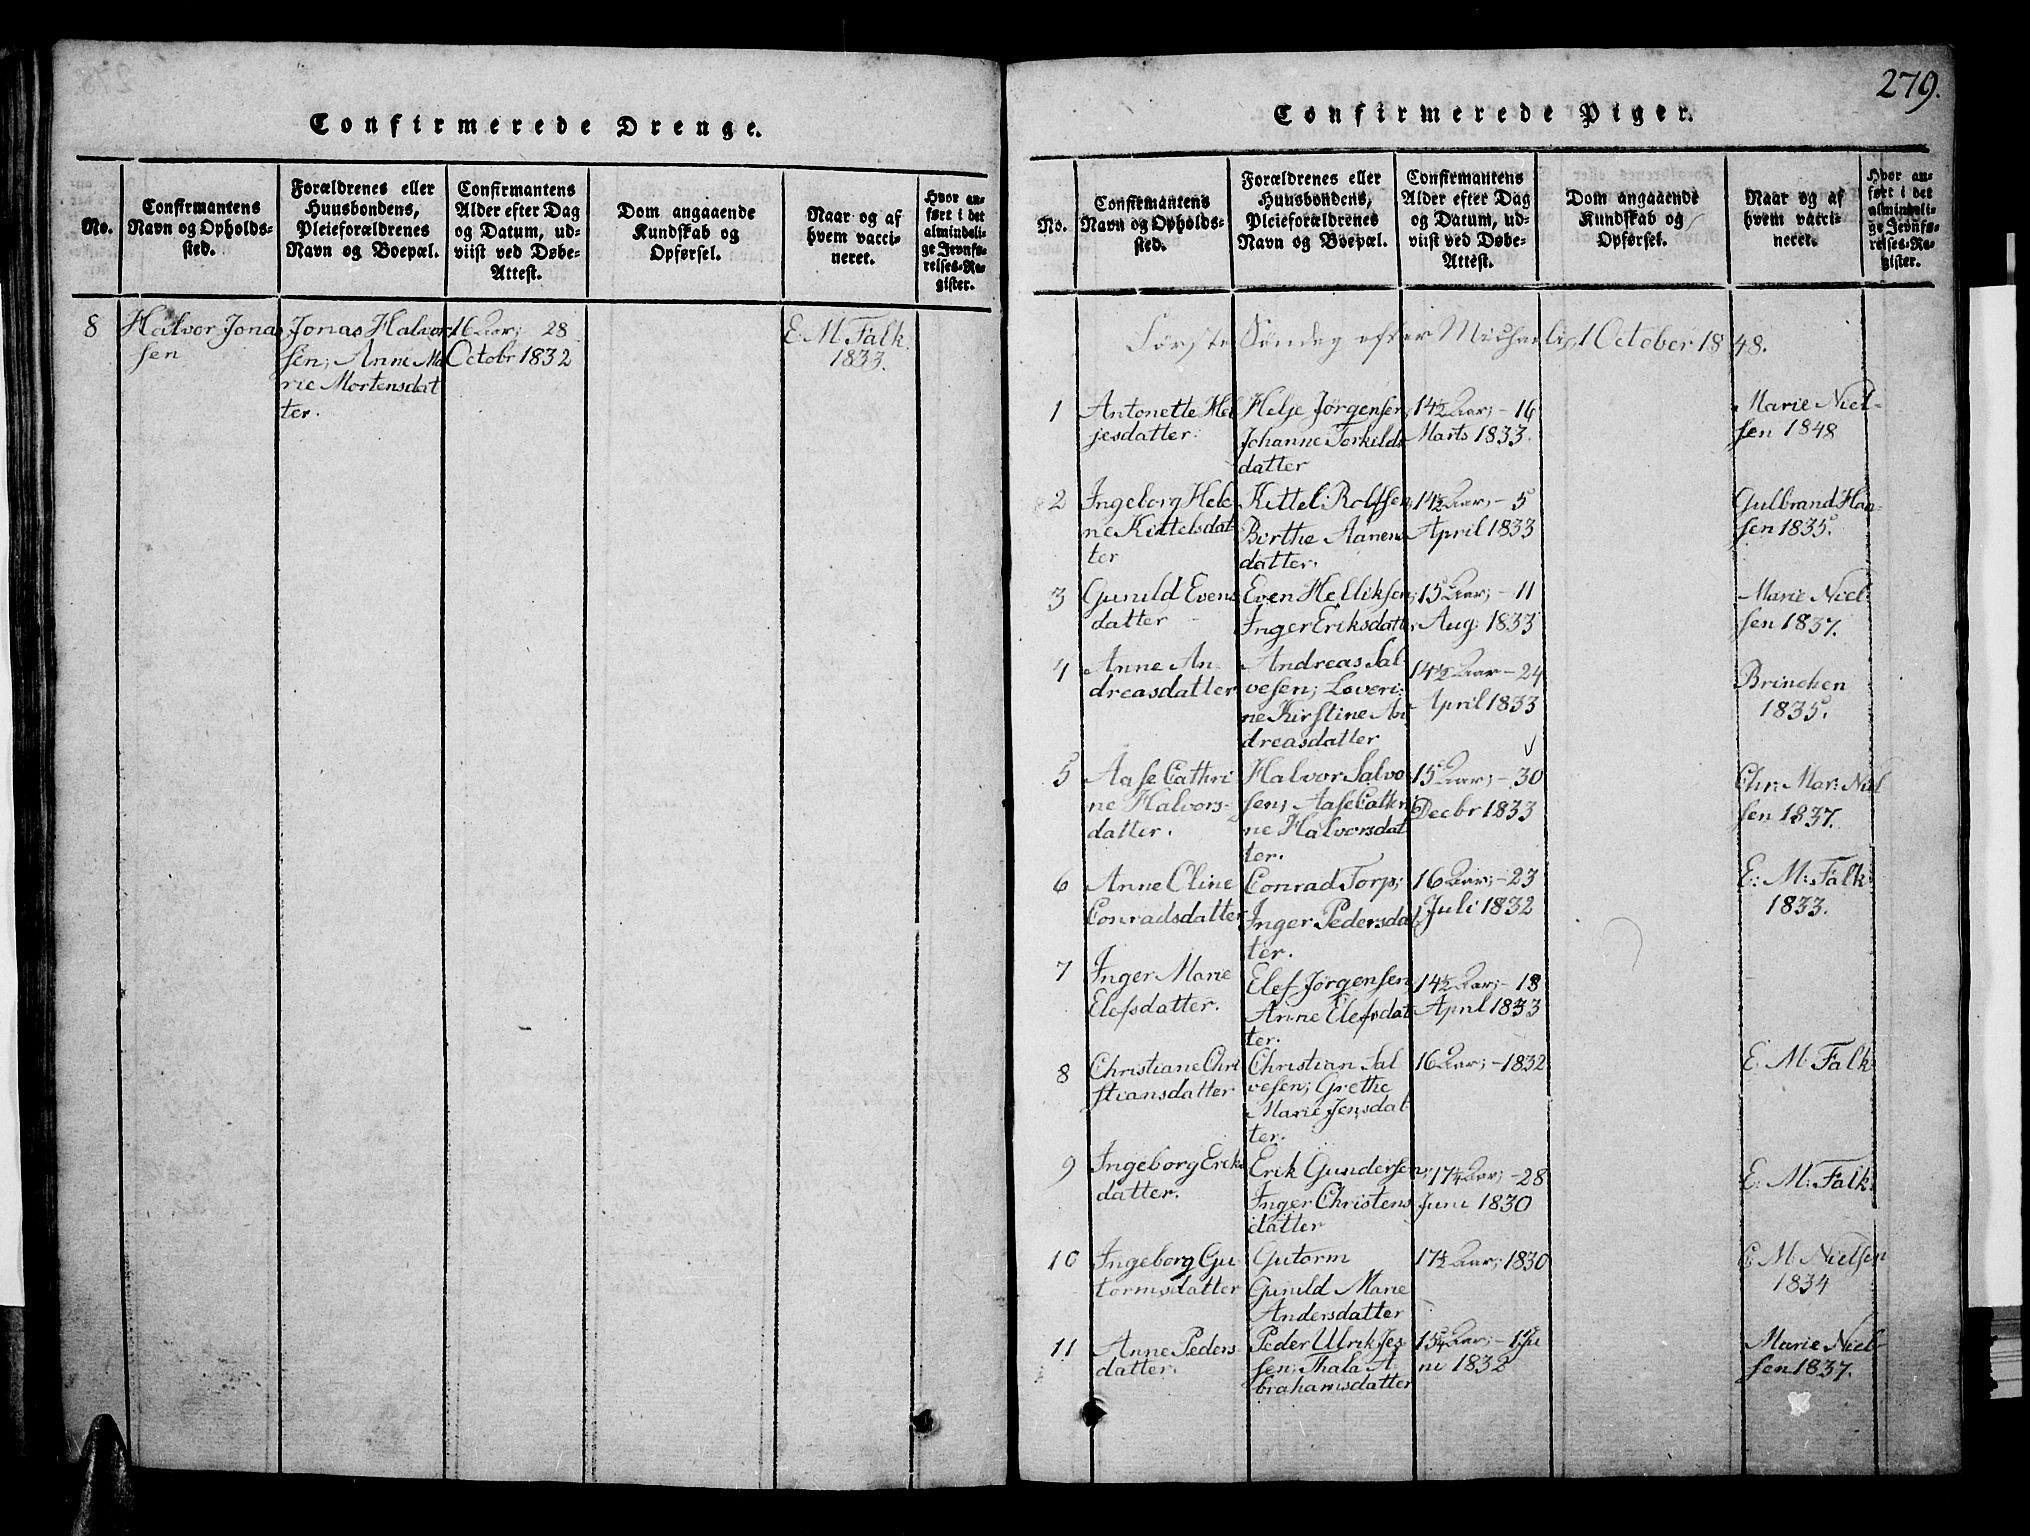 Confirmerede Drenge.
No.
Confirmantens
Navn og Opholds-
sted.
Forældrenes eller
Huusbondens,
Pleieforældrenes
Navn og Boepæl.
Confirmantens
Alder efter Dag
og Datum, ud-
viist ved Døbe-
Attest.
Dom angaaende
Kundskab og
Opførsel.
Naar og af
hvem vacci-
neret.
Hvor an-
ført i det
almindeli-
ge Jevnfø-
relses-Re-
gister.
8
Halvor Jonas
sen
Jonas Halvor
sen; Anne Ma
rie Mortensdat
ter.
16 Aar; 28
Octobr 1832
E. M. Falk
1833.
279.
Confirmerede Piger.
No.
Confirmantens
Navn og Opholds-
sted.
Forældrenes eller
Huusbondens,
Pleieforældrenes
Navn og Boepæl.
Confirmantens
Alder efter Dag
og Datum, ud-
viist ved Døbe-
Attest.
Dom angaaende
Kundskab og
Opførsel.
Naar og af
hvem vacci-
neret.
Hvor an-
ført i det
almindeli-
ge Jevnfø-
relses-Re-
gister.
Første Søndag efter Michaelis, 1 October 1848.
1
Antonette Hel
jesdatter.
Helje Jørgensen;
Johanne Torkilds
datter
14½ Aar; - 16
Marts 1833.
Marie Niel-
sen 1848
2
Ingeborg Hele
ne Kittelsdat
ter
Kittel Rolfsen;
Birthe Aanens
datter.
14½ Aar; - 5
April 1833
Gulbrand Han-
sen 1835.
3
Gunild Evens
datter
Even Helliksen;
Inger Eriksdatter
15 Aar; - 11
Aug: 1833
Marie Niel-
sen 1837.
4
Anne An-
dreasdatter
Andreas Sal
vesen; Loveri-
ne Kirstine An
dreasdatter
14½ Aar - 24
April 1833
Brinchen
1835.
5
Aase Cathri
ne Halvors-
datter.
Halvor Salve
sen; Aase Cathri
ne Halvorsdat
ter.
15 Aar; - 30
Decbr 1833
Chr: Mar: Niel
sen 1837.
6
Anne Oline
Conradsdatter
Conrad Torp;
Inger Pedersdat
ter.
16 Aar; - 23
Juli 1832
E: M: Falk
1833.
7
Inger Marie
Elefsdatter.
Elef Jørgensen
Anne Elefsdat
ter.
14½ Aar; - 18
April 1833
8
Christiane Chri
stiansdatter
Christian Sal
vesen; Grethe
Marie Jensdat
ter.
16 Aar; - 1832
E. M: Falk
9
Ingeborg Eriks
datter.
Erik Gundersen;
Inger Christens
datter
17¼ Aar; - 28
Juni 1830
E: M: Falk
10
Ingeborg Gu-
tormsdatter
Gutorm
Gunild Marie
Andersdatter
17½ Aar; 1830
C. M. Nielsen
1834
11
Anne Peders-
datter.
Peder Ulrik Jes
sen; Thala A
brahamsdatter
15¼ Aar; - 1 Ju
ni 1832
Marie Niel-
sen 1837.